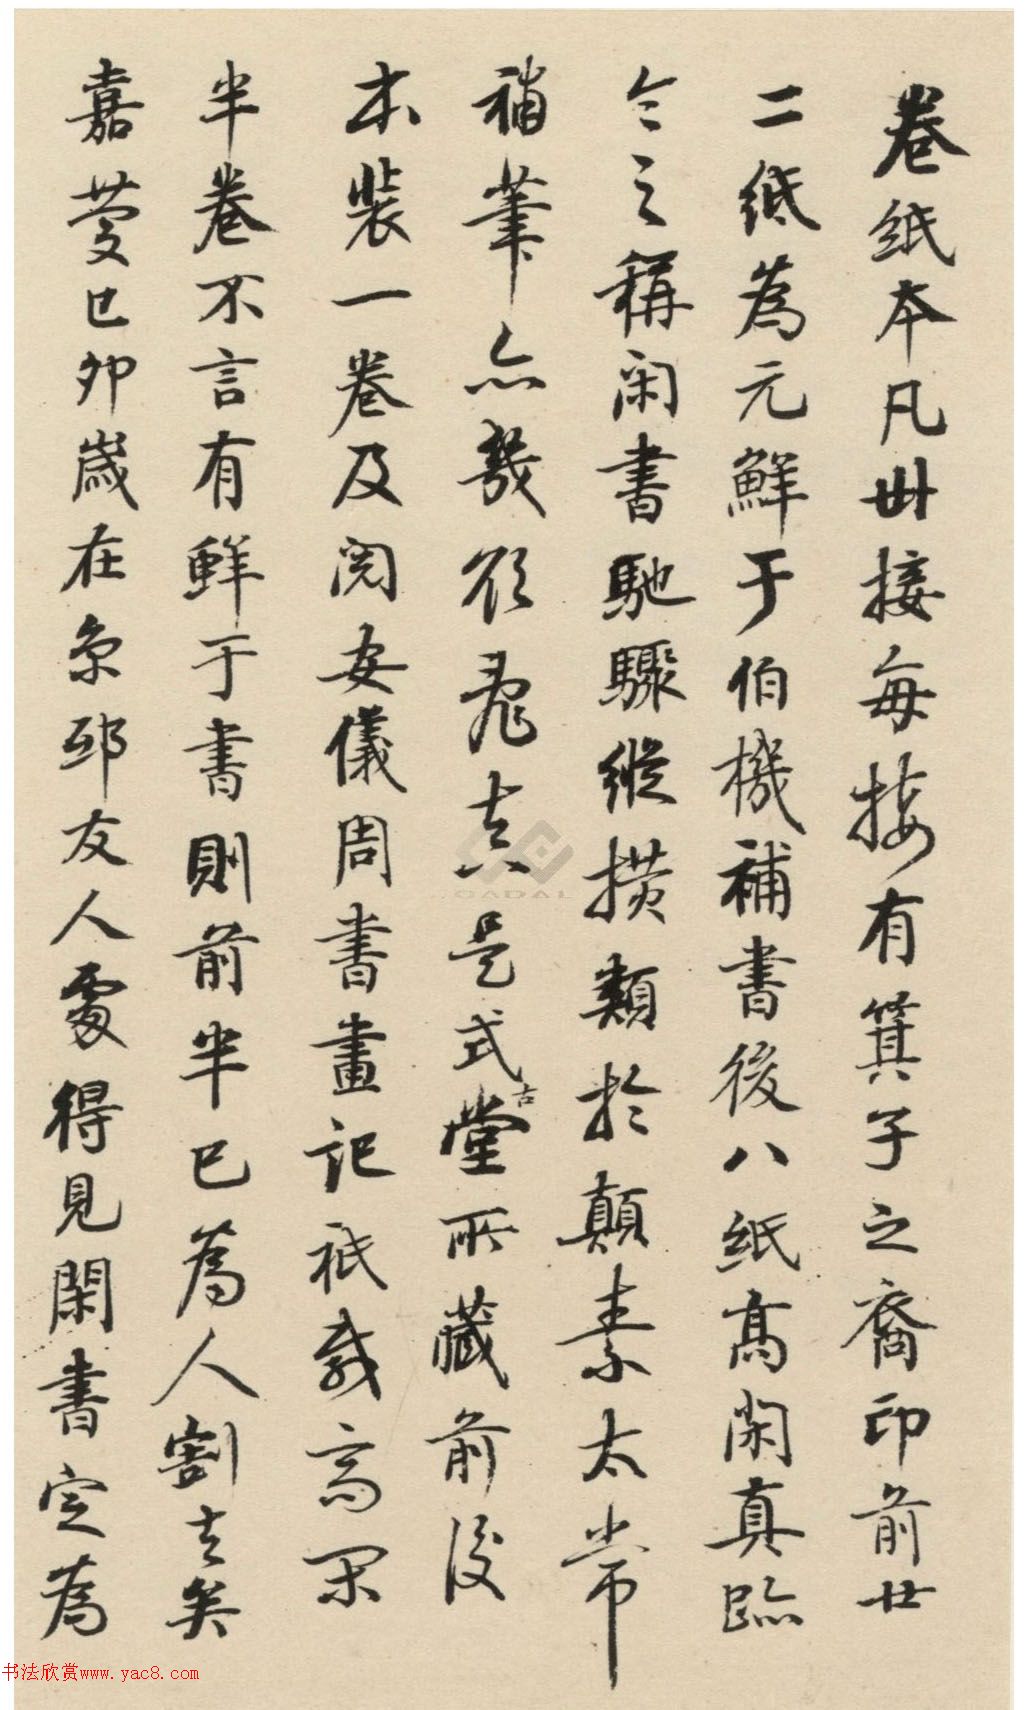 卷纸本凡卅接每接有箕子之裔印前廿
二纸為元鮮于伯機補書後八纸髙闲真臨
令之稱闲書馳驟縱横類於顛素太常
補筆亦幾欲亂真是式古堂所藏前後
本裝一卷及阅安儀周書畫記祇載高闲
半卷不言有鮮于書則前半已為人割去矣
嘉慶己卯歲在京邸友人處得見閑書定為
CADAL
书法欣赏www.yac8.com